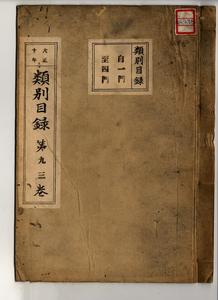 大正
十年
類別目録
第九三巻
類別目録
自一門
至四門